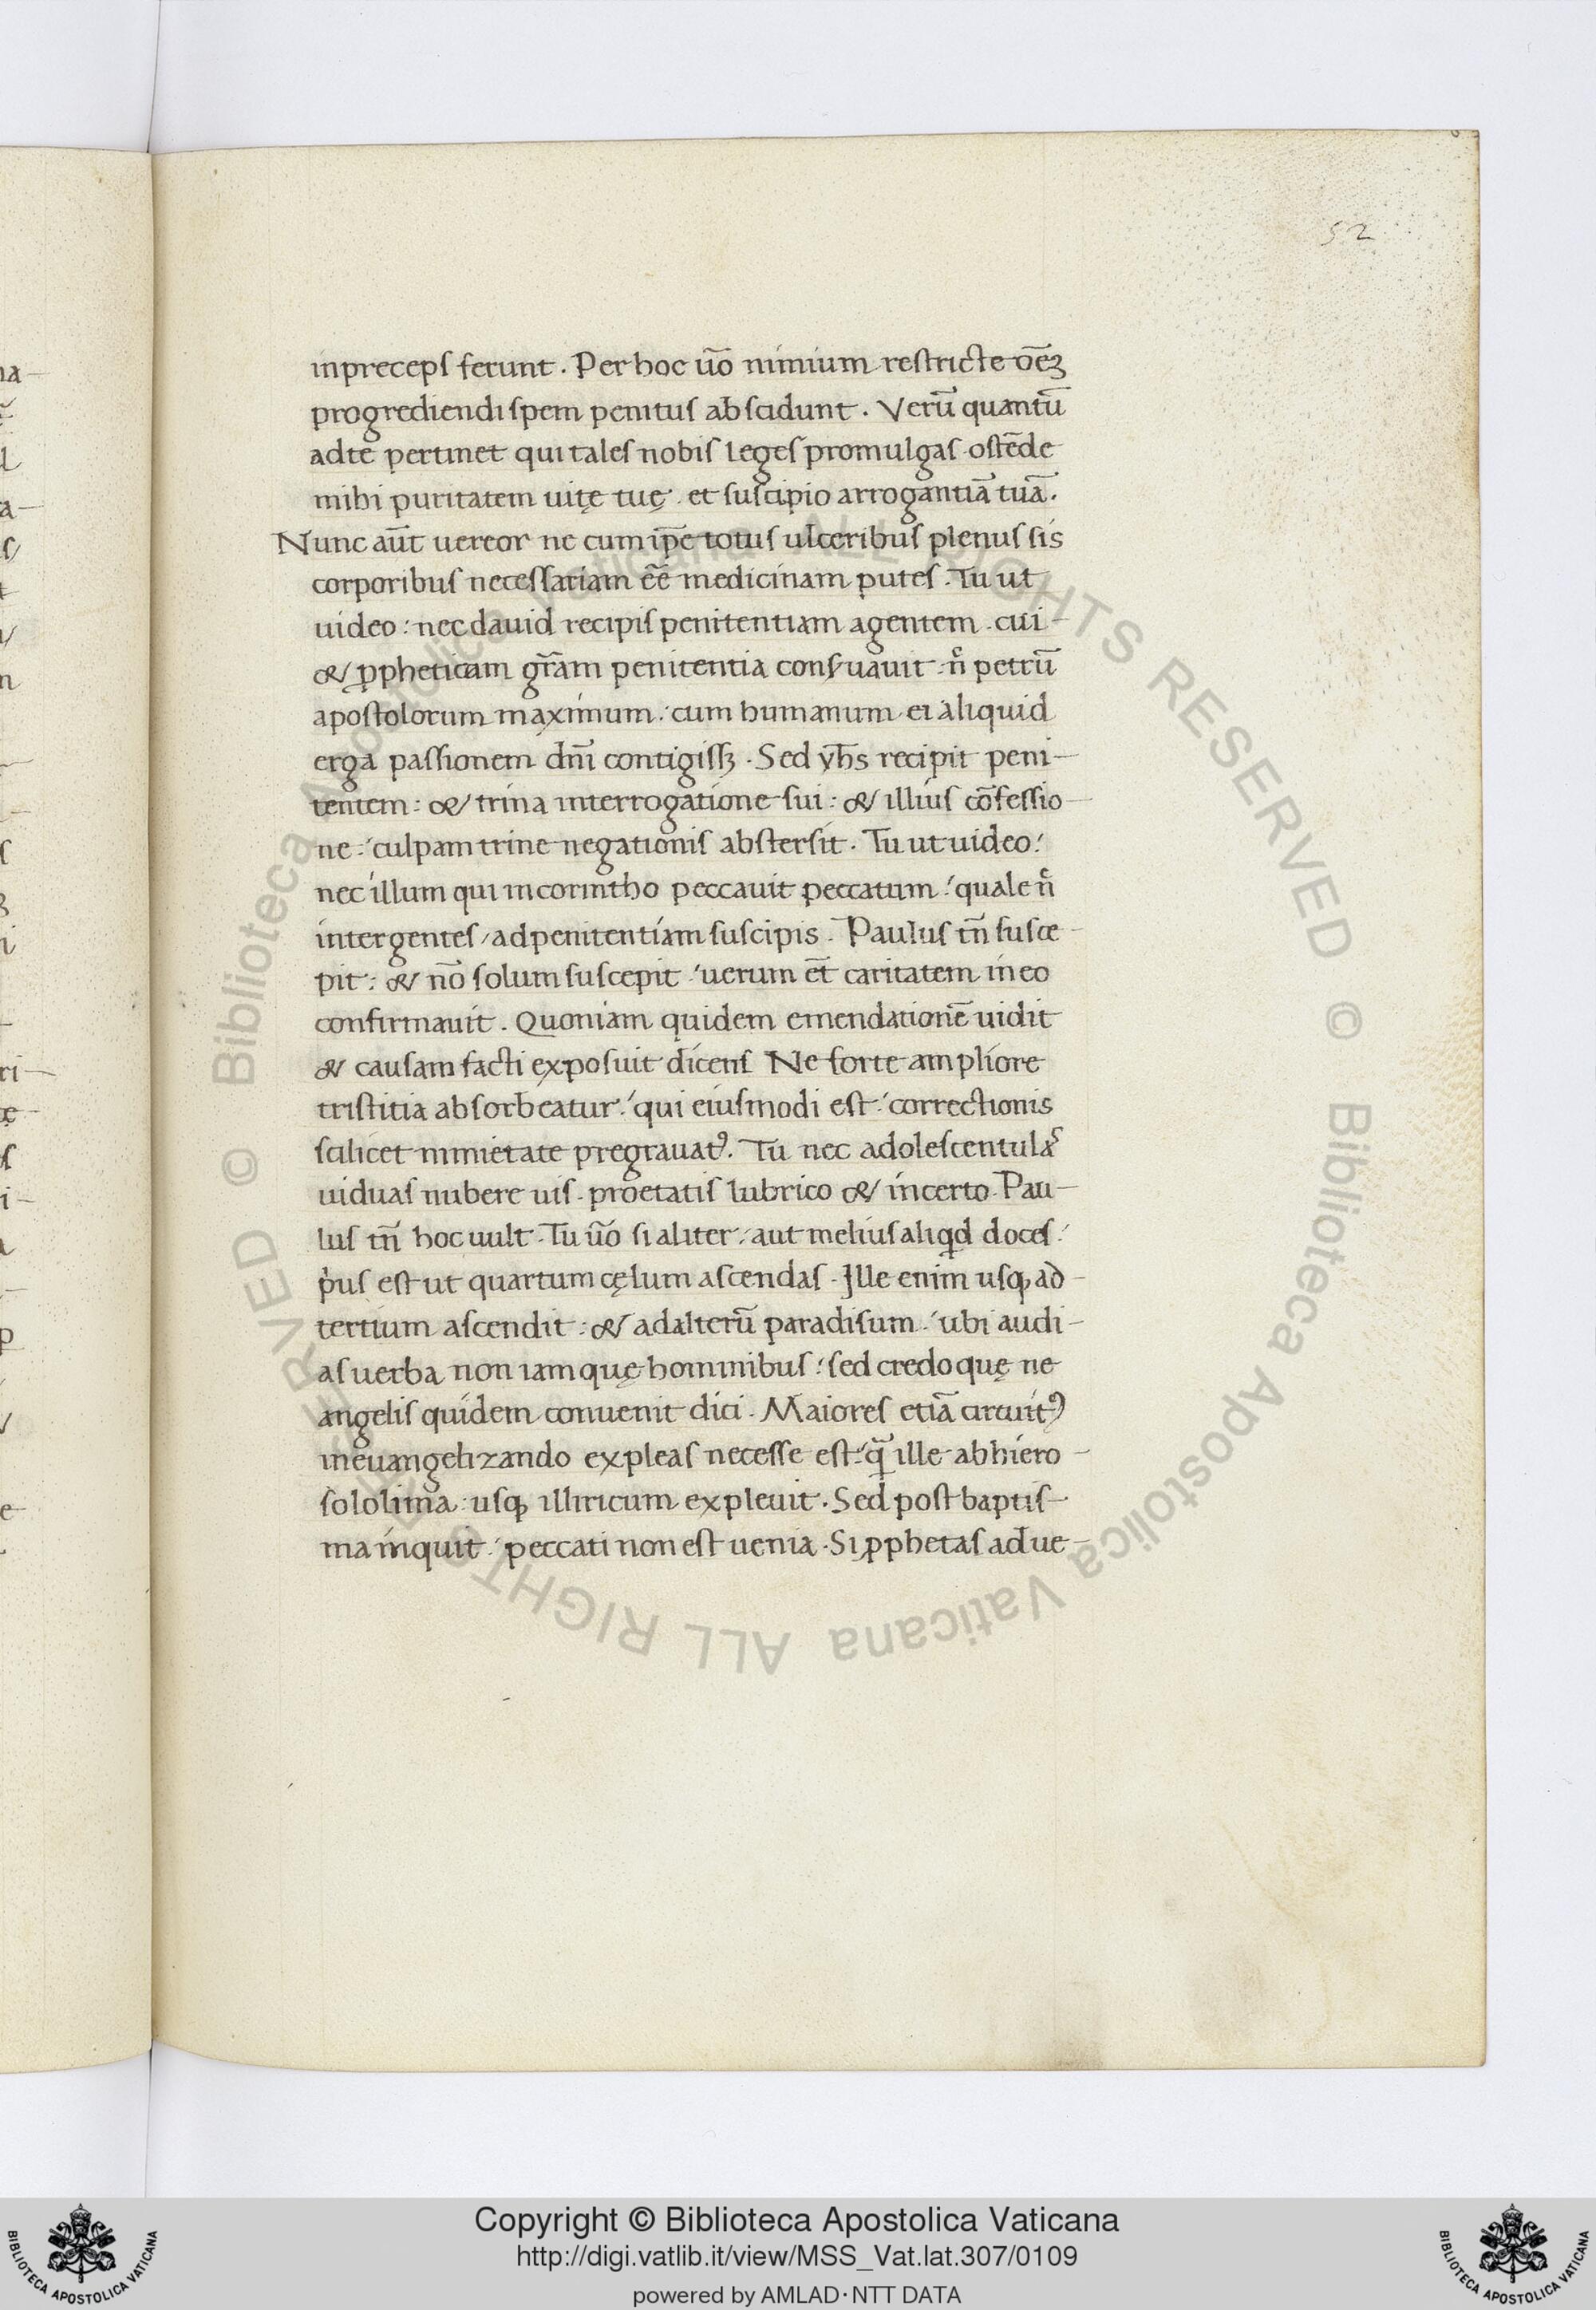 52
inpreceps ferunt. Per hoc ūo nimium restricte oē̄ꝫ
progrediendi spem penitus abscidunt. Verū quantū
adte pertinet qui tales nobis leges promulgas ostēde
mihi puritatem uitę tuę. et suscipio arrogantiā tuā.
Nunc aūt uereor ne cum ip̄e totus ulceribus plenus sis
corporibus necessariam eē̄ medicinam putes. Tu ut
uideo: nec dauid recipis penitentiam agentem. cui-
& ꝓpheticam gr̄am penitentia conſuauit. n̊ petrū
apostolorum maximum: cum humanum ei aliquid
erga passionem dn̄i contigissꝫ. Sed yh̄s recipit peni-
tentem: & trina interrogatione sui: & illius cōfessio-
ne: culpam trine negationis abstersit. Tu ut uideo:
nec illum qui incorintho peccauit peccatum: quale n̊
intergentes/ adpenitentiam suscipis. Paulus tn̄ susce-
pit: & nō solum suscepit: uerum et̄ caritatem in eo
confirmauit. Quoniam quidem emendationē uidit
& causam facti exposuit dicens Ne forte ampliore
tristitia absorbeatur: qui eiusmodi est: correctionis
scilicet nimietate pregrauatꝰ. Tu nec adolescentulas
uiduas nubere uis. proetatis lubrico & incerto. Pau-
lus tn̄ hoc uult. Tu ūo si aliter: aut melius aliqd doces:
pͥus est ut quartum cęlum ascendas. Ille enim usqꝫ ad-
tertium ascendit: & adalterū paradisum: ubi audi-
as uerba non iam quę hominibus: sed credo quę ne
angelis quidem conuenit dici. Maiores etiā circuitꝰ
ineuangelizando expleas necesse est: q̄ ille abhiero-
sololima: usqꝫ illiricum expleuit. Sed post baptis-
ma inquit: peccati non est uenia. Si ꝓphetas adue-
Copyright © Biblioteca Apostolica Vaticana
http://digi.vatlib.it/view/MSS_Vat.lat.307/0109
powered by AMLAD·NTT DATA
BIBLIOTECA APOSTOLICA VATICANA
BIBLIOTECA APOSTOLICA VATICANA
© Biblioteca Apostolica Vaticana ALL RIGHTS RESERVED © Biblioteca Apostolica Vaticana ALL RIGHTS RESERVED